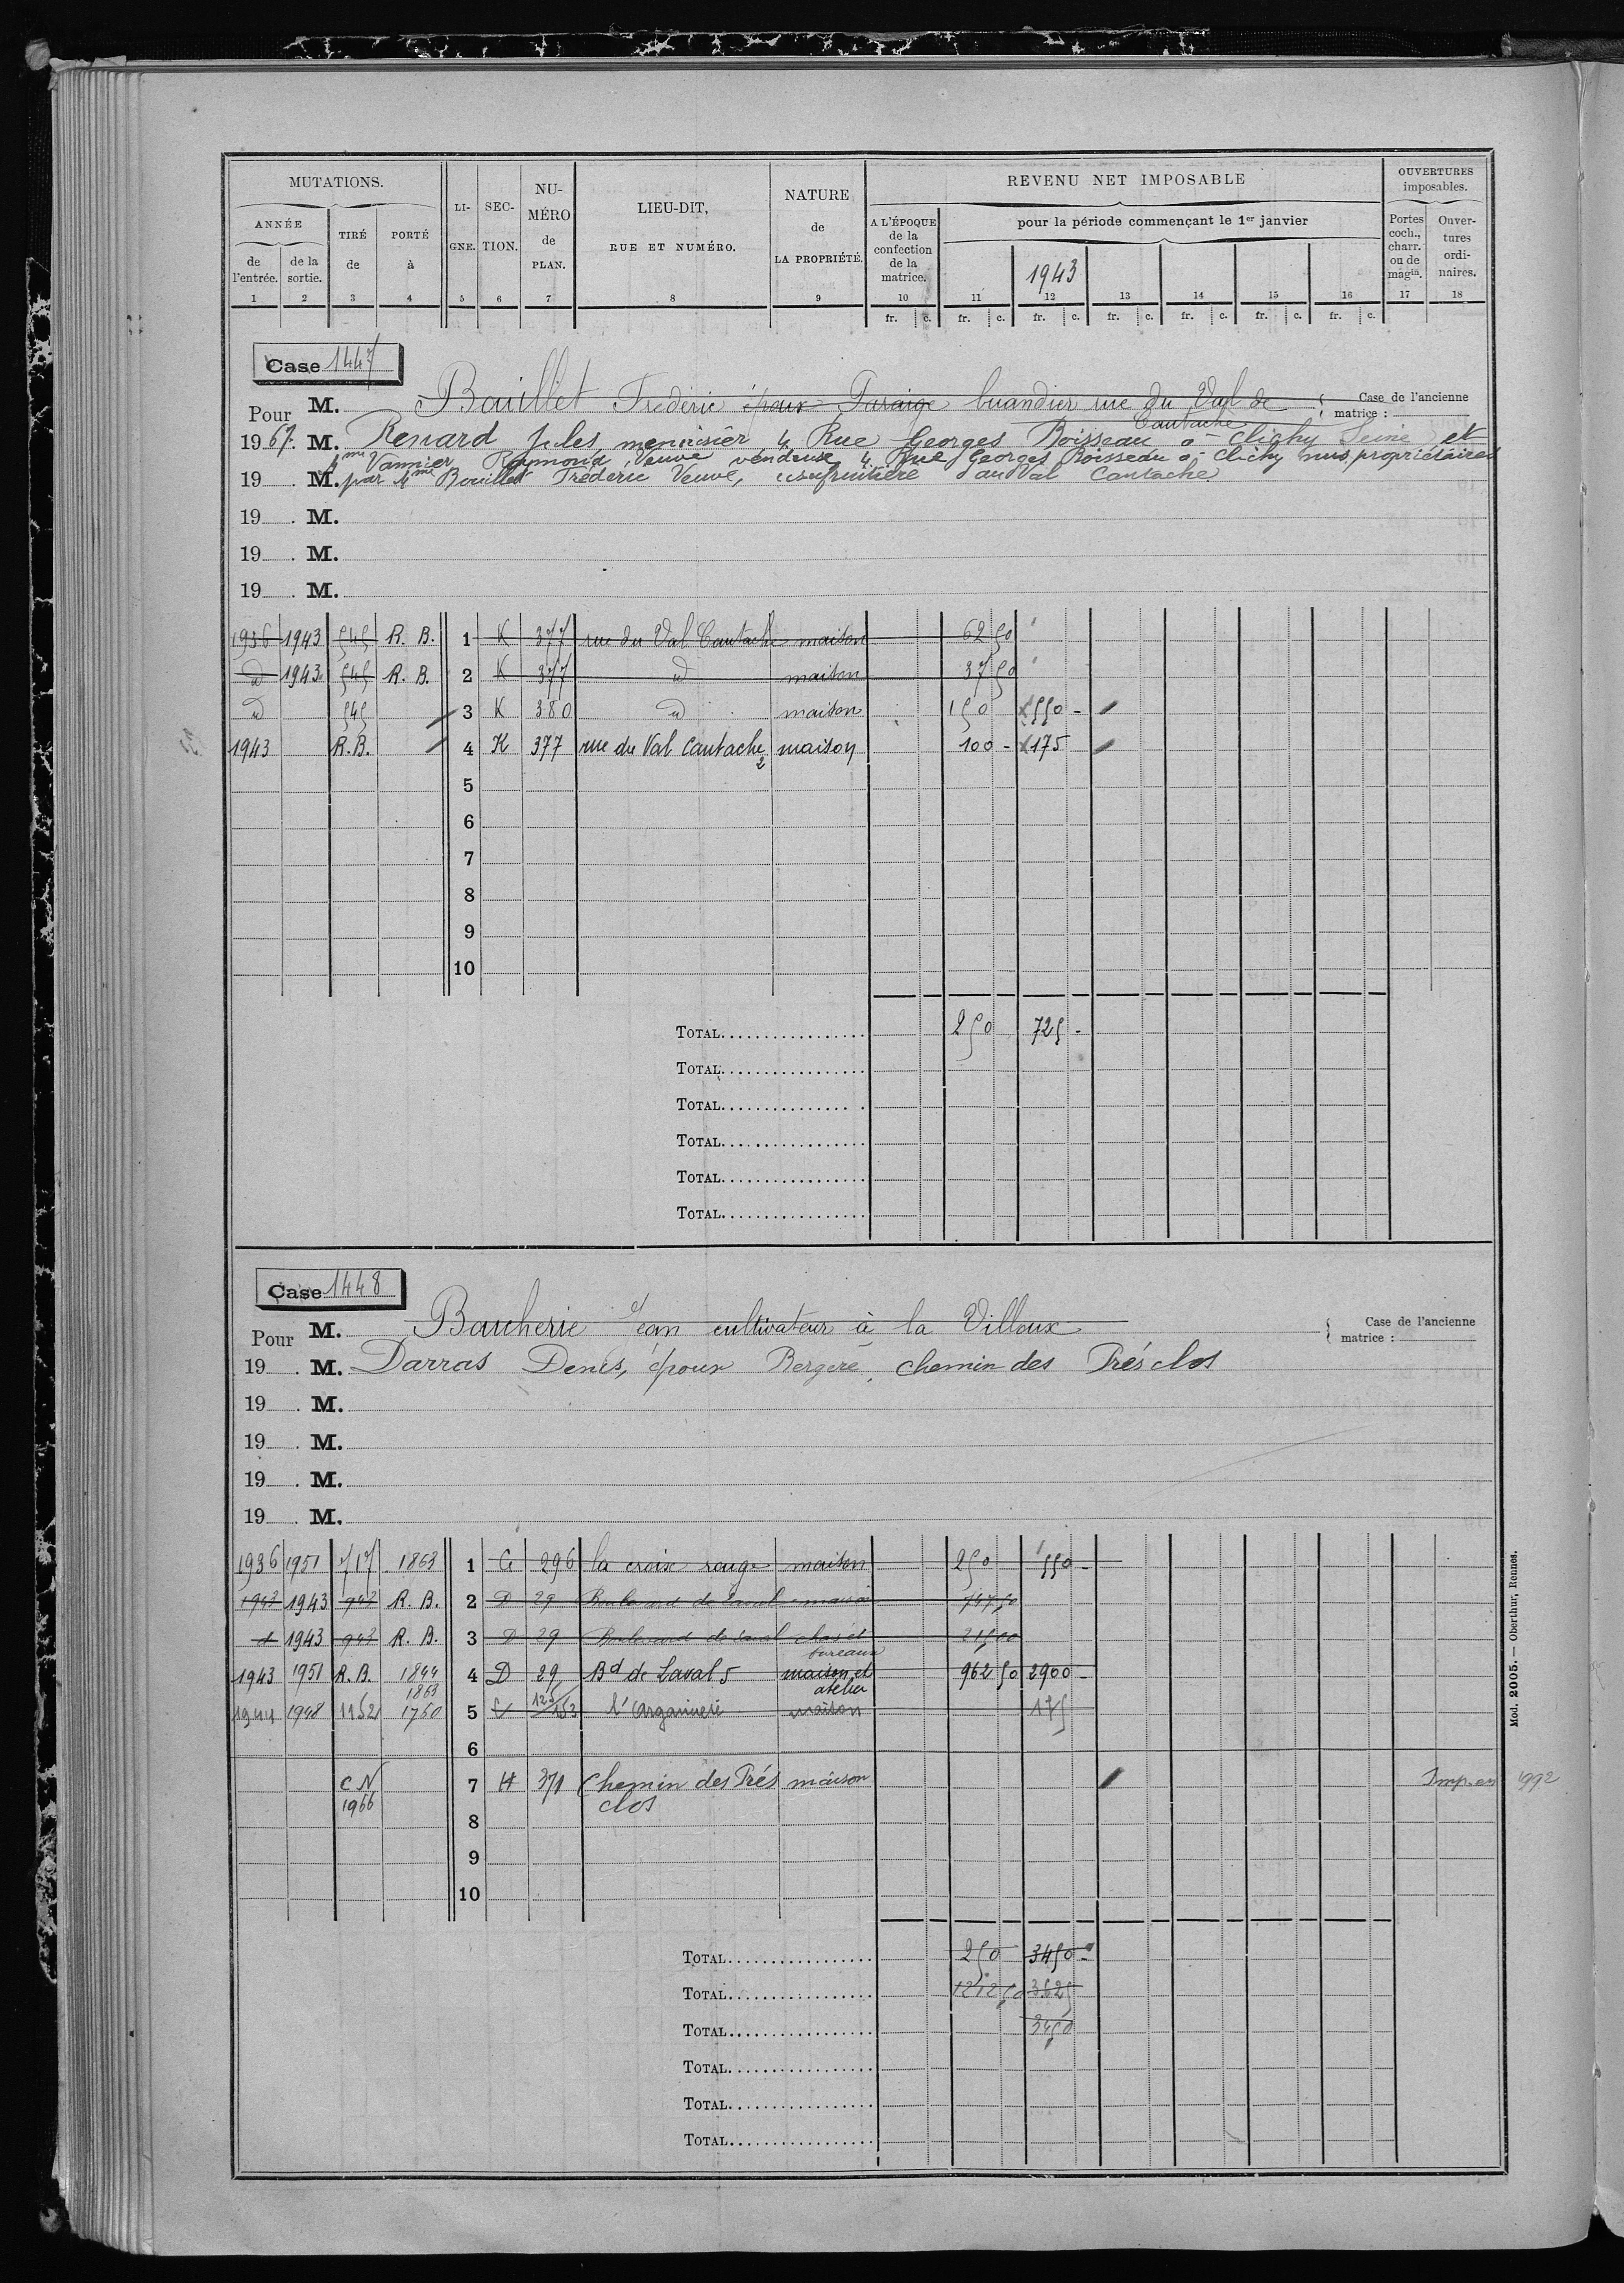 MUTATIONS.
ANNÉE
de l'entrée.
de la sortie.
TIRÉ de
PORTÉ à
LI-GNE.
SEC-TION.
NU-MÉRO de PLAN.
LIEU-DIT, RUE ET NUMÉRO.
NATURE de LA PROPRIÉTÉ.
REVENU NET IMPOSABLE
A L'ÉPOQUE de la confection de la matrice.
pour la période commençant le 1er janvier
1943
OUVERTURES imposables.
Portes coch., charr. ou de magin.
Ouver-tures ordi-naires.
1 2 3 4 5 6 7 8 9 10 11 12 13 14 15 16 17 18
fr. c. fr. c. fr. c. fr. c. fr. c. fr. c. fr. c.
Case 1447
Pour M. Bouillet Frédéric époux buandier rue du Val de Cantache
Case de l'ancienne matrice :
1967. M. Renard Jules menuisier 4 Rue Georges Boisseau à Clichy Seine et
Mme Vannier Raymond Veuve vendeuse 4 Rue Georges Boisseau à Clichy nus propriétaires
19 . M. par Mme Bouillet Frédéric Veuve, usufruitière au Val Cantache
19 . M.
19 . M.
19 . M.
1936 1943 545 R. B. 1 K 377 rue du Val Cantache maison 62 50
d 1943 545 R. B. 2 K 377 d maison 37 50
d 545 3 K 380 d maison 150 550 -
1943 R.B. 4 K 377 rue du Val Cantache 2 maison 100 - 175
5
6
7
8
9
10
TOTAL 250 725 -
TOTAL
TOTAL
TOTAL
TOTAL
TOTAL
Case 1448
Pour M. Boucherie Jean cultivateur à la Villoux
Case de l'ancienne matrice :
19 . M. Darras Denis, époux Bergère, chemin des Prés clos
19 . M.
19 . M.
19 . M.
19 . M.
1936 1951 717 1863 1 G 296 la croix rouge maison 250 550 -
1943 1943 943 R. B. 2 D 29 Boulevard de Laval maison 747 50
d 1943 943 R. B. 3 D 29 Boulevard de Laval 215 00
1943 1951 R. B. 1844 1863 4 D 29 Bd de Laval 5 bureaux maison et atelier 962 50 2900 -
1944 1948 1152 1760 5 l'Arganinerie maison 175
6
C N 1966 7 H 371 Chemin des Prés clos maison Imp. en 1992
8
9
10
TOTAL 250 3450 -
TOTAL 1212 50 3625
TOTAL 3450
TOTAL
TOTAL
TOTAL
Mod. 2005. — Oberthur, Rennes.